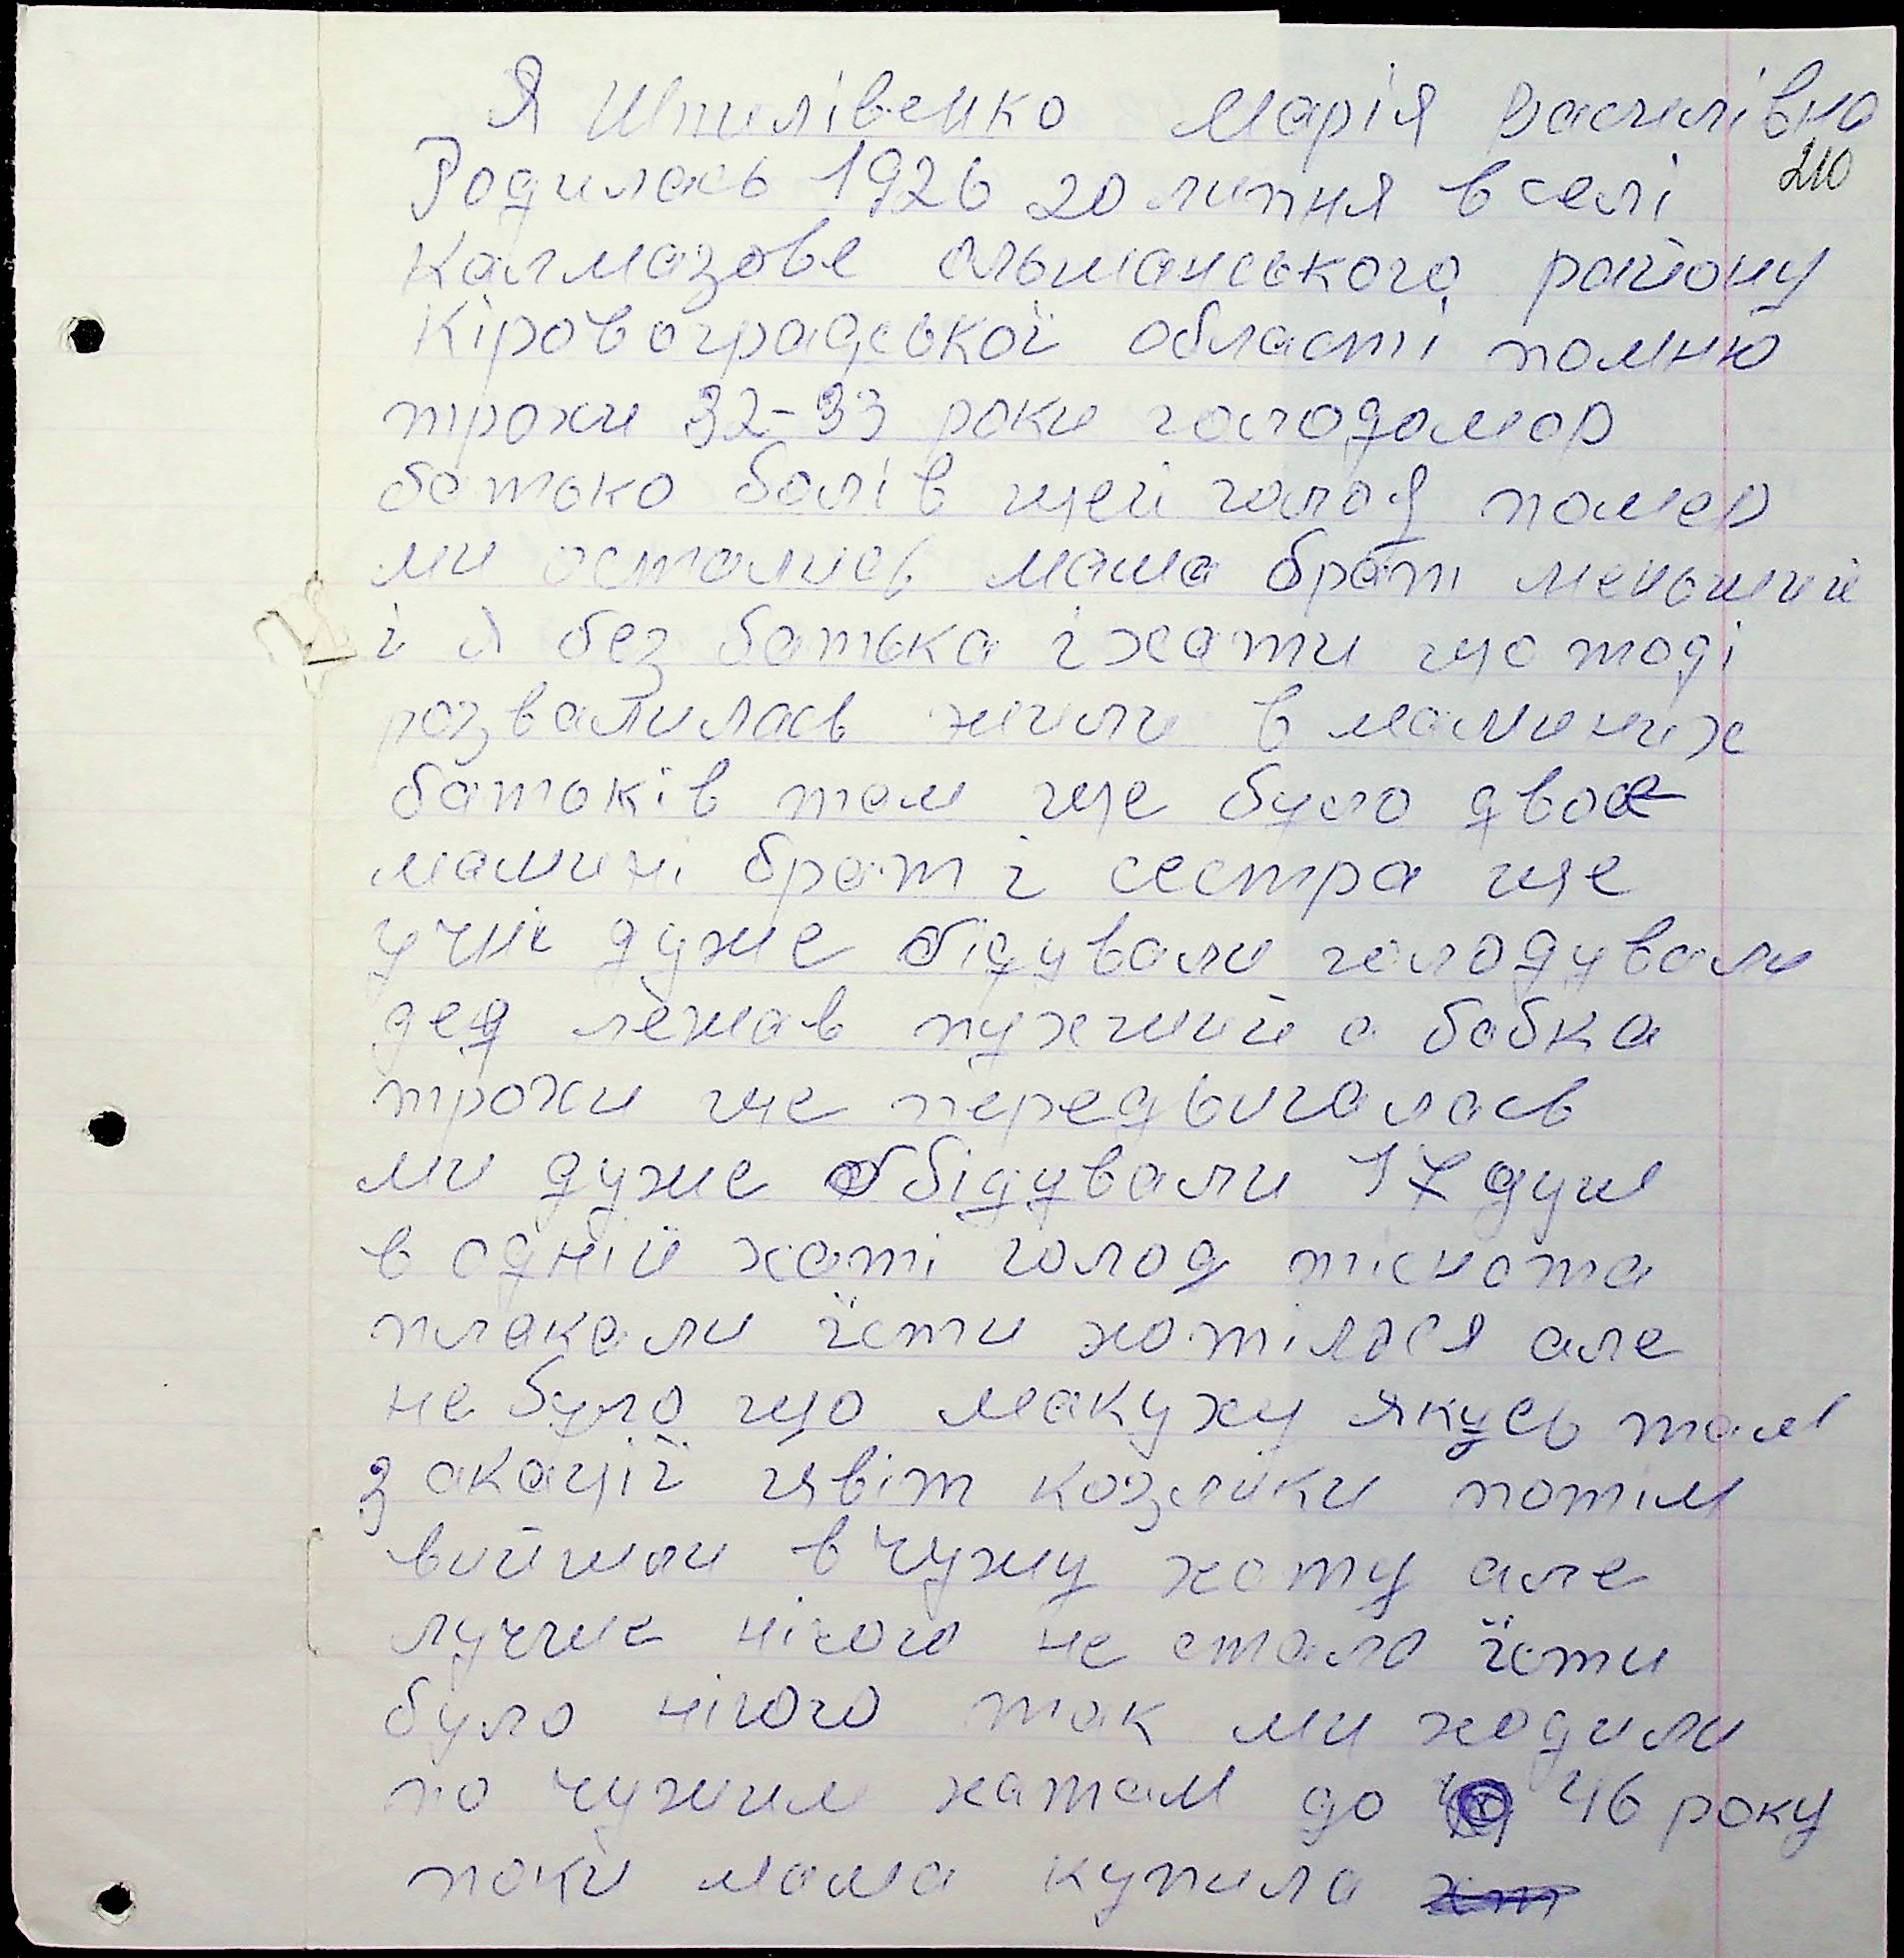 Я Шпилівенко Марія Василівна
210
Родилась 1926 20 липня в селі
Калмазове ольшанського району
Кіровоградської області помню
трохи 32-33 роки голодомор
батько болів щей голод помер
ми остались мама брат меньший
і я без батька і хати що тоді
розвалилась жили в маминих
батьків там ще було двоє
мамині брат і сестра ще
учні дуже бідували голодували
дед лежав пухший а бабка
трохи ще передвигалась
ми дуже обідували 17 душ
в одній хаті голод тіснота
плакали їсти хотілося але
не було що макуху якусь там
з акації цвіт козлики потім
вийшли в чужу хату але
лучше нічого не стало їсти
було нічого так ми ходили
по чужим хатам до 46 року
поки мама купила хт